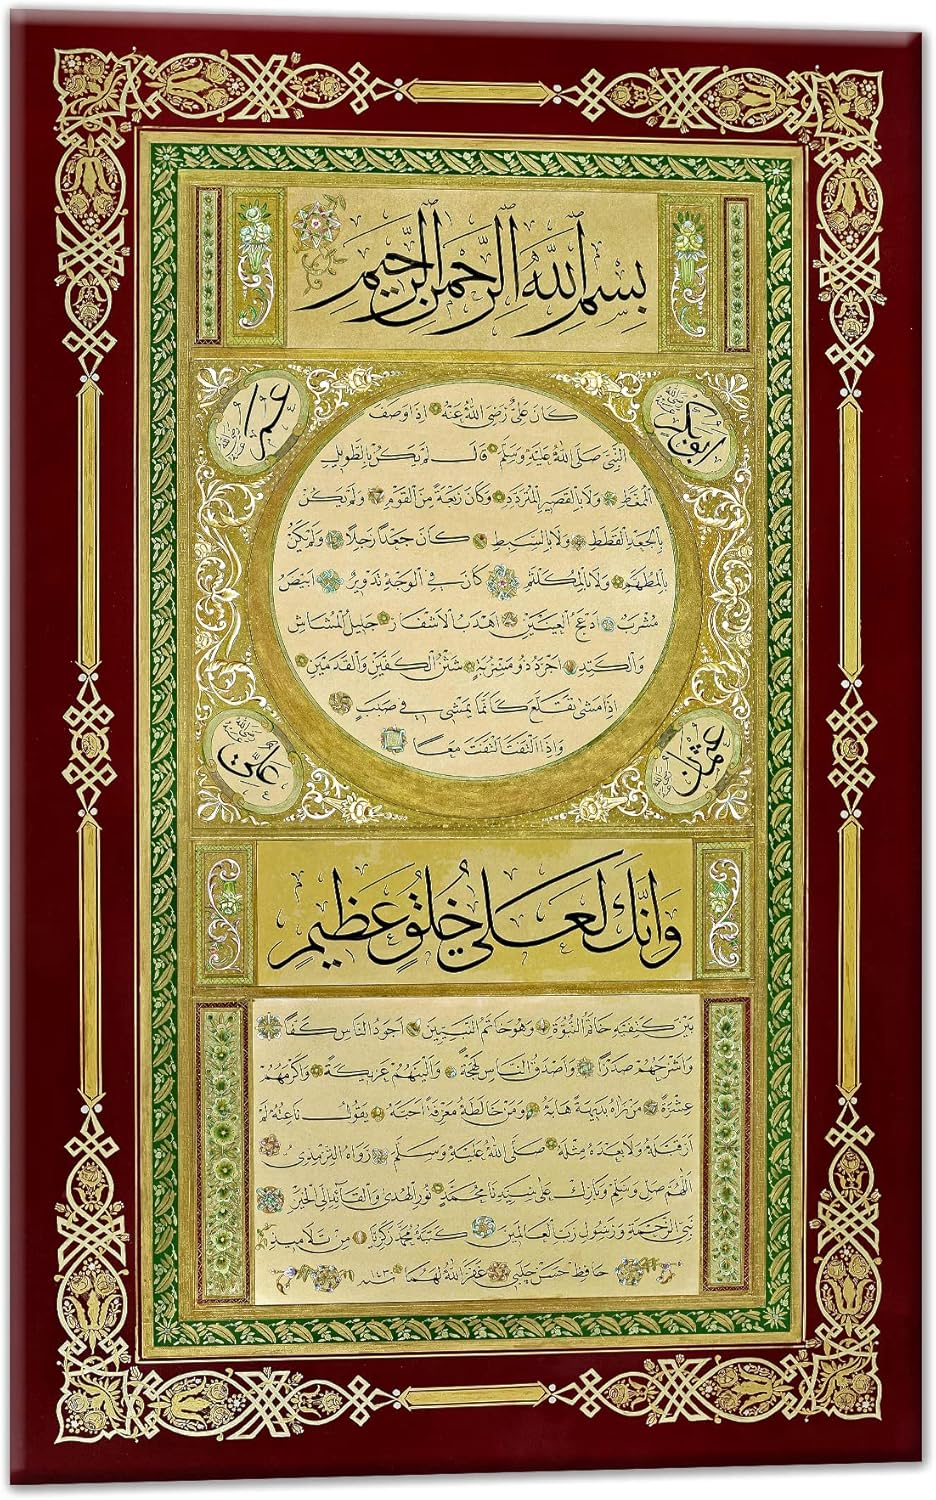 بِسْمِ اللّٰهِ الرَّحْمٰنِ الرَّحِيمِ
ابو بكر رضي الله عنه
عمر رضي الله عنه
كَانَ عَلِيٌّ رَضِيَ اللّٰهُ عَنْهُ اِذَا وَصَفَ
النَّبِيَّ صَلَّى اللّٰهُ عَلَيْهِ وَسَلَّمَ قَالَ لَمْ يَكُنْ بِالطَّوِيلِ
الْمُمَّغِطِ وَلَا بِالْقَصِيرِ الْمُتَرَدِّدِ وَكَانَ رَبْعَةً مِنَ الْقَوْمِ وَلَمْ يَكُنْ
بِالْجَعْدِ الْقَطَطِ وَلَا بِالسَّبِطِ كَانَ جَعْدًا رَجِلًا وَلَمْ يَكُنْ
بِالْمُطَهَّمِ وَلَا بِالْمُكَلْثَمِ وَكَانَ فِي الْوَجْهِ تَدْوِيرٌ اَبْيَضُ
مُشْرَبٌ اَدْعَجُ الْعَيْنَيْنِ اَهْدَبُ الْاَشْفَارِ جَلِيلُ الْمُشَاشِ
وَالْكَتَدِ اَجْرَدُ ذُو مَسْرُبَةٍ شَثْنُ الْكَفَّيْنِ وَالْقَدَمَيْنِ
اِذَا مَشٰى تَقَلَّعَ كَاَنَّمَا يَمْشِي فِي صَبَبٍ
وَاِذَا الْتَفَتَ الْتَفَتَ مَعًا
عثمان رضي الله عنه
علي رضي الله عنه
وَاِنَّكَ لَعَلٰى خُلُقٍ عَظِيمٍ
بَيْنَ كَتِفَيْهِ خَاتَمُ النُّبُوَّةِ وَهُوَ خَاتَمُ النَّبِيِّينَ اَجْوَدُ النَّاسِ كَفًّا
وَاَشْرَحُهُمْ صَدْرًا وَاَصْدَقُ النَّاسِ لَهْجَةً وَاَلْيَنُهُمْ عَرِيكَةً وَاَكْرَمُهُمْ
عِشْرَةً مَنْ رَاٰهُ بَدِيهَةً هَابَهُ وَمَنْ خَالَطَهُ مَعْرِفَةً اَحَبَّهُ يَقُولُ نَاعِتُهُ لَمْ
اَرَ قَبْلَهُ وَلَا بَعْدَهُ مِثْلَهُ صَلَّى اللّٰهُ عَلَيْهِ وَسَلَّمَ رَوَاهُ التِّرْمِذِيُّ
اَللّٰهُمَّ صَلِّ وَسَلِّمْ وَبَارِكْ عَلٰى سَيِّدِنَا مُحَمَّدٍ نُورِ الْهُدٰى وَالْقَائِدِ اِلَى الْخَيْرِ
نَبِيِّ الرَّحْمَةِ وَرَسُولِ رَبِّ الْعَالَمِينَ كَتَبَهُ مُحَمَّد زَكَرِيَّا مِنْ تَلَامِيذِ
حَافِظ حَسَن چَلَبِي غَفَرَ اللّٰهُ لَهُمَا